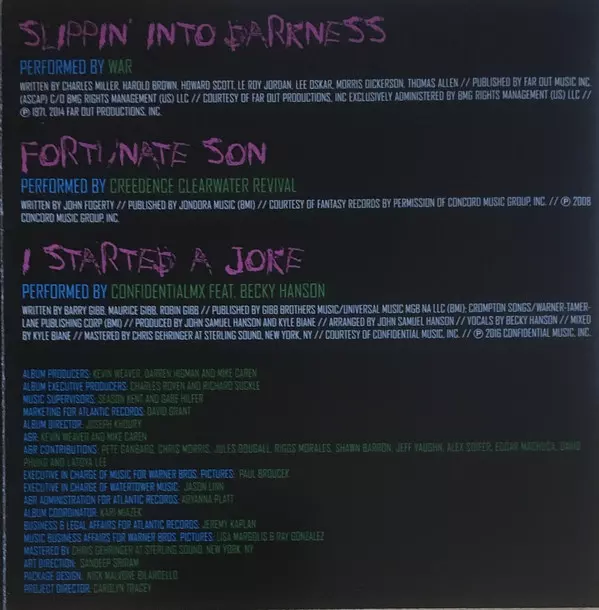 SLIPPIN' INTO DARKNESS
PERFORMED BY WAR
WRITTEN BY CHARLES MILLER, HAROLD BROWN, HOWARD SCOTT, LE ROY JORDAN, LEE OSKAR, MORRIS DICKERSON, THOMAS ALLEN // PUBLISHED BY FAR OUT MUSIC INC.
(ASCAP) C/O BMG RIGHTS MANAGEMENT (US) LLC // COURTESY OF FAR OUT PRODUCTIONS, INC EXCLUSIVELY ADMINISTERED BY BMG RIGHTS MANAGEMENT (US) LLC //
℗ 1971, 2014 FAR OUT PRODUCTIONS, INC.
FORTUNATE SON
PERFORMED BY CREEDENCE CLEARWATER REVIVAL
WRITTEN BY JOHN FOGERTY // PUBLISHED BY JONDORA MUSIC (BMI) // COURTESY OF FANTASY RECORDS BY PERMISSION OF CONCORD MUSIC GROUP, INC. // ℗ 2008
CONCORD MUSIC GROUP, INC.
I STARTED A JOKE
PERFORMED BY CONFIDENTIALMX FEAT. BECKY HANSON
WRITTEN BY BARRY GIBB, MAURICE GIBB, ROBIN GIBB // PUBLISHED BY GIBB BROTHERS MUSIC/UNIVERSAL MUSIC MGB NA LLC (BMI); CROMPTON SONGS/WARNER-TAMER-
LANE PUBLISHING CORP (BMI) // PRODUCED BY JOHN SAMUEL HANSON AND KYLE BIANE // ARRANGED BY JOHN SAMUEL HANSON // VOCALS BY BECKY HANSON // MIXED
BY KYLE BIANE // MASTERED BY CHRIS GEHRINGER AT STERLING SOUND, NEW YORK, NY // COURTESY OF CONFIDENTIAL MUSIC, INC. // ℗ 2016 CONFIDENTIAL MUSIC, INC.
ALBUM PRODUCERS: KEVIN WEAVER, DARREN HIGMAN AND MIKE CAREN
ALBUM EXECUTIVE PRODUCERS: CHARLES ROVEN AND RICHARD SUCKLE
MUSIC SUPERVISORS: SEASON KENT AND GABE HILFER
MARKETING FOR ATLANTIC RECORDS: DAVID GRANT
ALBUM DIRECTOR: JOSEPH KHOURY
A&R: KEVIN WEAVER AND MIKE CAREN
A&R CONTRIBUTIONS: PETE GANBARG, CHRIS MORRIS, JULES DOUGALL, RIGGS MORALES, SHAWN BARRON, JEFF VAUGHN, ALEX EDGAR MACHUCA, DAVID
AND LATOYA LEE
EXECUTIVE IN CHARGE OF MUSIC FOR WARNER BROS. PICTURES: PAUL BROUCEK
EXECUTIVE IN CHARGE OF WATERTOWER MUSIC: JASON LINN
A&R ADMINISTRATION FOR ATLANTIC RECORDS: ARYANNA PLATT
ALBUM COORDINATOR: KARI MIAZEK
BUSINESS & LEGAL AFFAIRS FOR ATLANTIC RECORDS: JEREMY KAPLAN
MUSIC BUSINESS AFFAIRS FOR WARNER BROS. PICTURES: LISA MARGOLIS & RAY GONZALEZ
MASTERED BY CHRIS GEHRINGER AT STERLING SOUND, NEW YORK, NY
ART DIRECTION: SANDEEP SRIRAM
PACKAGE DESIGN: NICK BILARDELLO
PROJECT DIRECTOR: CAROLYN TRACEY